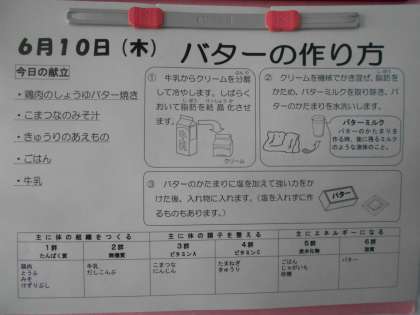 6月10日（木）
バターの作り方
今日の献立
・鶏肉のしょうゆバター焼き
・こまつなのみそ汁
・きゅうりのあえもの
・ごはん
・牛乳
① 牛乳からクリームを分離
して冷やします。しばらく
おいて脂肪を結晶化させ
ます。
クリーム
② クリームを機械でかき混ぜ、脂肪を
かため、バターミルクを取り除き、バ
ターのかたまりを水洗いします。
バターミルク
バターのかたまりを作
る時、後に残るミルク
のような液体のこと。
③ バターのかたまりに塩を加えて強い力をか
けた後、入れ物に入れます。（塩を入れずに作
るものもあります。）
バター
主に体の組織をつくる
主に体の調子を整える
主にエネルギーになる
1群 2群 3群 4群 5群 6群
たんぱく質 無機質 ビタミンA ビタミンC 炭水化物 脂質
鶏肉 牛乳 こまつな たまねぎ ごはん バター
とうふ だしこんぶ にんじん きゅうり じゃがいも
みそ 砂糖
けずりぶし